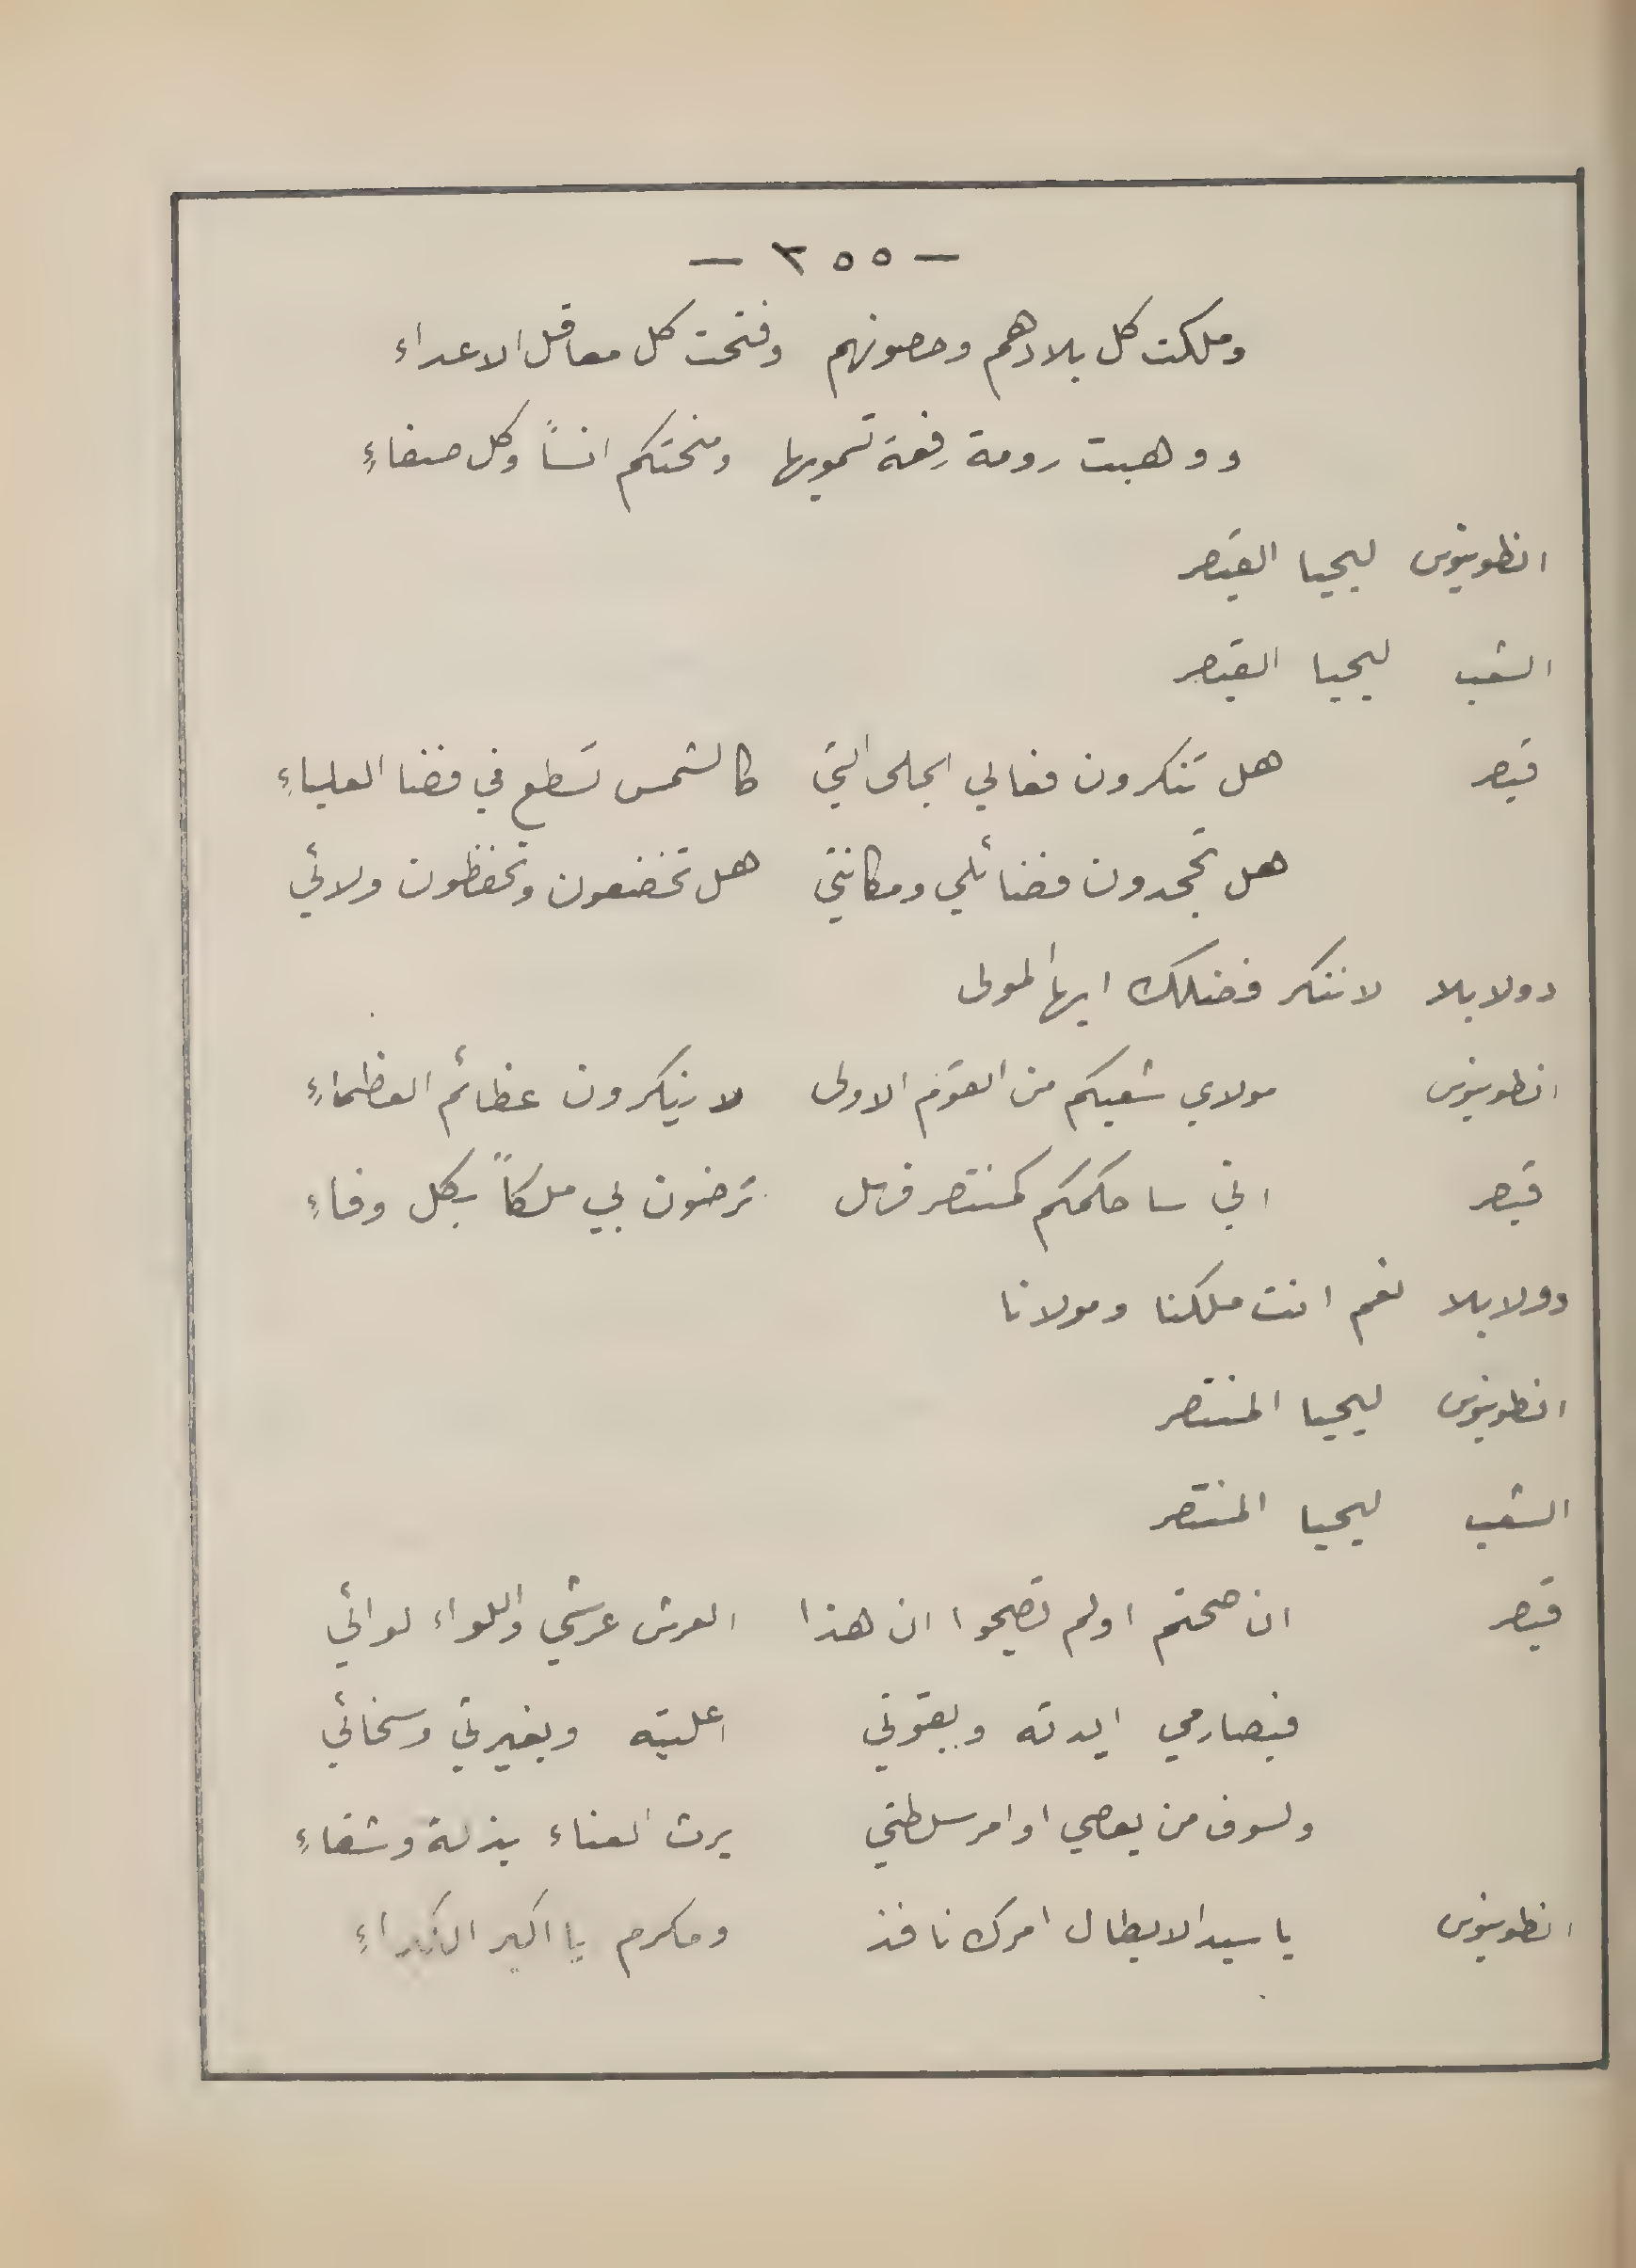 — ٢٥٥ —
وملكت كل بلادهم وحصونهم وفتحت كل معاقل الاعداء
ووهبت رومة رفعة تسمو بها ومنحتكم انساً وكل صفاءِ
انطونيوس ليحيا القيصر
الشعب ليحيا القيصر
قيصر هل تنكرون فعالي الجلى التي كالشمس تسطع في فضا العلياءِ
هل تجحدون فضائلي ومكانتي هل تخضعون وتحفظون ولائي
دولابلا لا ننكر فضلك ايها المولى
انطونيوس مولاي شعبكم من القوم الاولى لا ينكرون عظائم العظماءِ
قيصر اني ساحكمكم كمنتصر فهل ترضون بي ملكاً بكل وفاءِ
دولابلا نعم انت ملكنا ومولانا
انطونيوس ليحيا المنتصر
الشعب ليحيا المنتصر
قيصر ان صحتم او لم تصيحوا ان هذا العرش عرشي واللواء لوائي
فبصارمي ايدته وبقوتي اعليته وبغيرتي وسخائي
ولسوف من يعصي اوامر سلطتي يرث العناء بذلة وشقاءِ
انطونيوس يا سيد الابطال امرك نافذ ومكرم يا اكبر